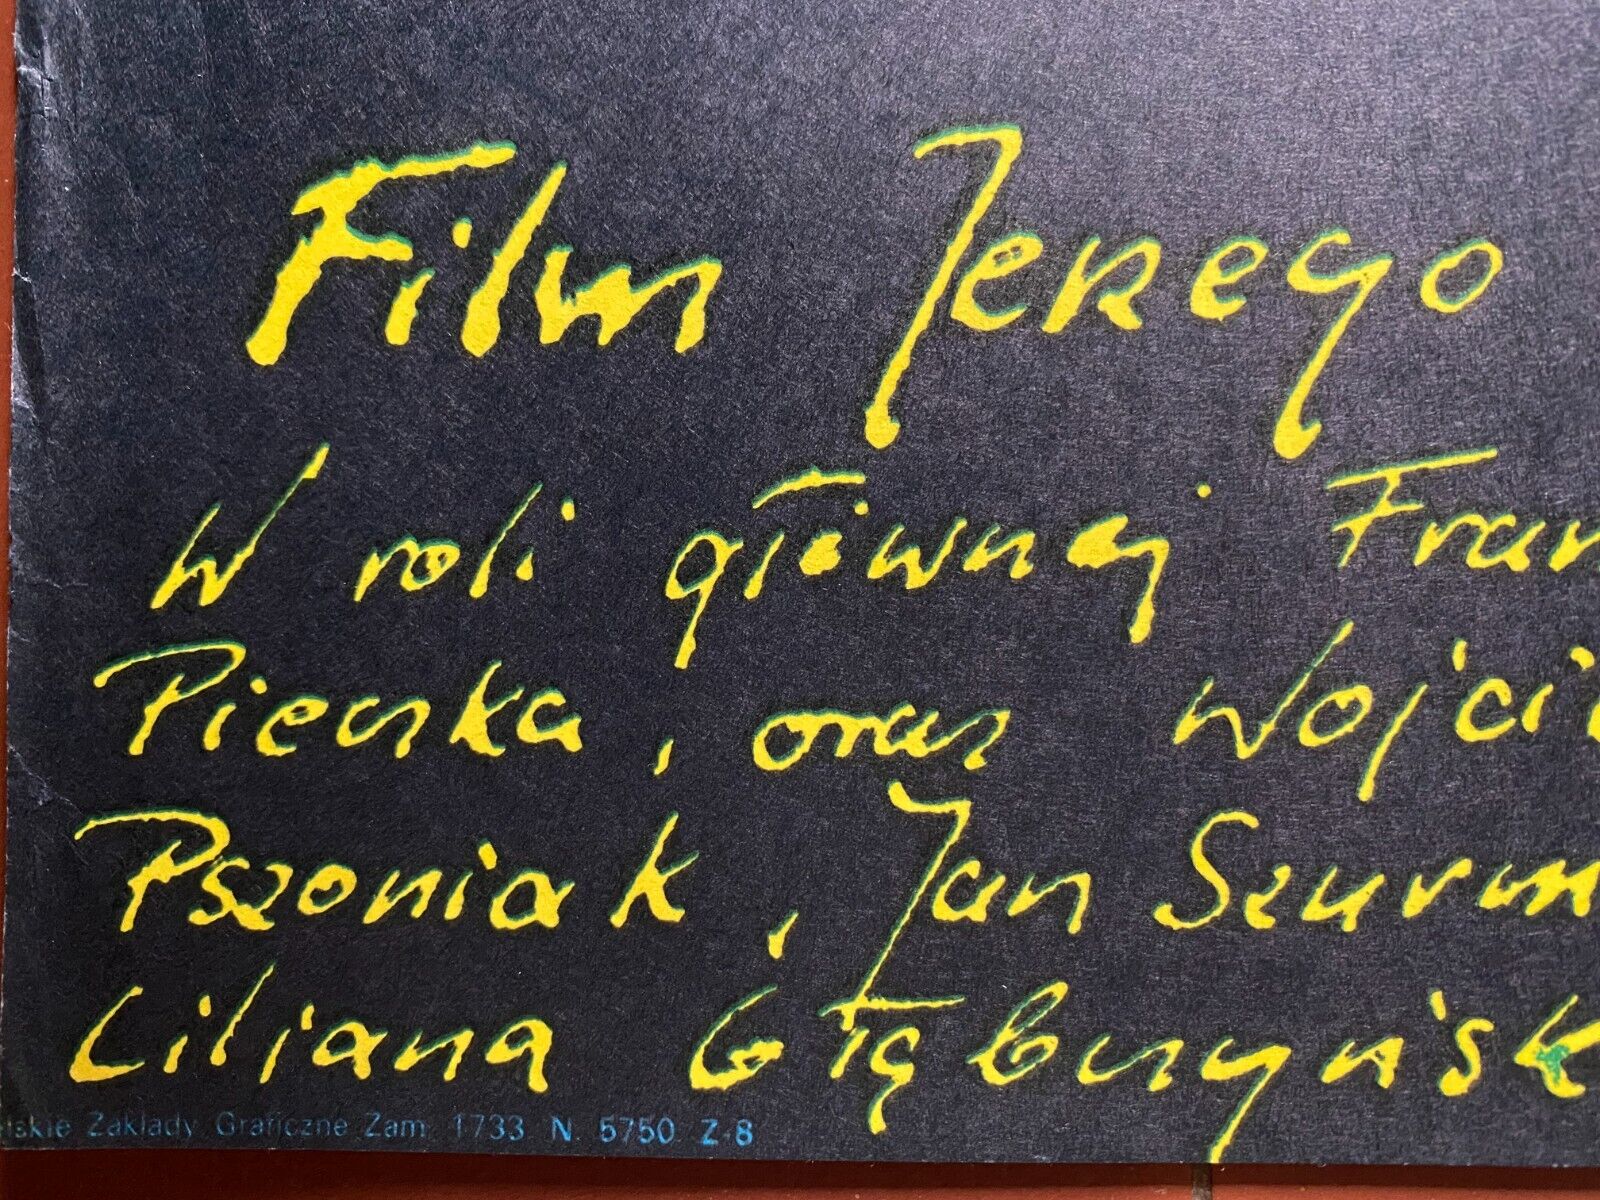 Film Jerzego
W roli głównej Fran
Pieczka, oraz Wojci
Pszoniak, Jan Szurm
Liliana Głąbczyńsk
lskie Zakłady Graficzne Zam. 1733 N. 5750 Z-8